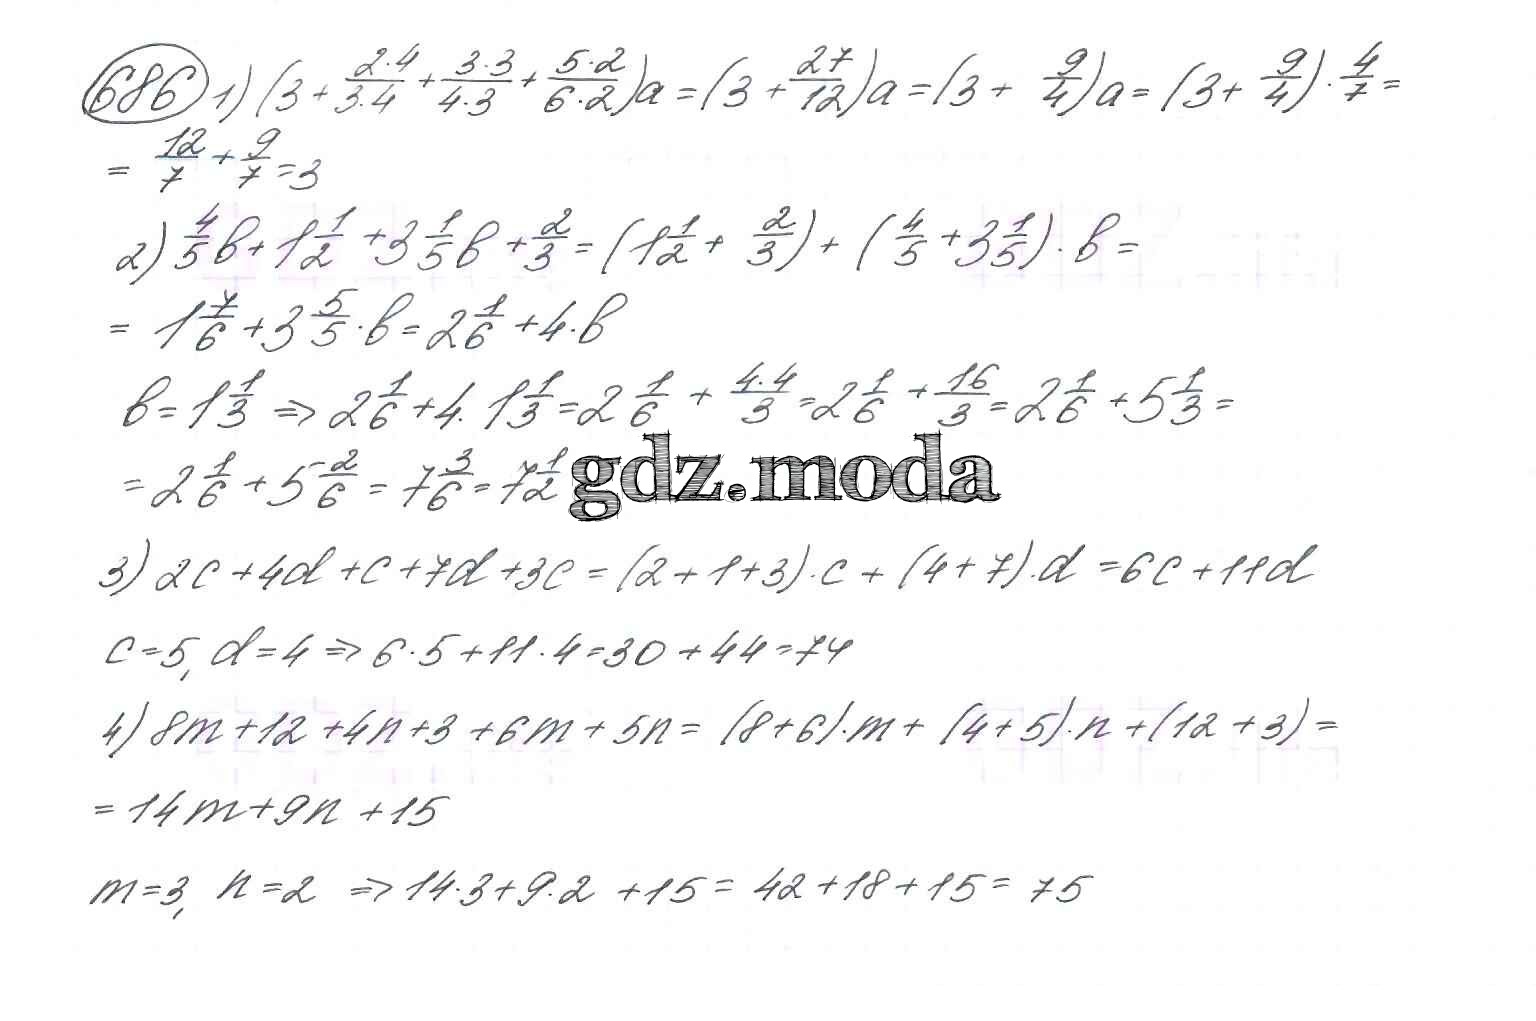 686 1) (3 + 2·4/3·4 + 3·3/4·3 + 5·2/6·2)a = (3 + 27/12)a = (3 + 9/4)a = (3 + 9/4) · 4/7 =
= 12/7 + 9/7 = 3
2) 4/5 b + 1 1/2 + 3 1/5 b + 2/3 = (1 1/2 + 2/3) + (4/5 + 3 1/5) · b =
= 1 7/6 + 3 5/5 · b = 2 1/6 + 4·b
b = 1 1/3 => 2 1/6 + 4 · 1 1/3 = 2 1/6 + 4·4/3 = 2 1/6 + 16/3 = 2 1/6 + 5 1/3 =
= 2 1/6 + 5 2/6 = 7 3/6 = 7 1/2
gdz.moda
3) 2c + 4d + c + 7d + 3c = (2 + 1 + 3) · c + (4 + 7) · d = 6c + 11d
c = 5, d = 4 => 6 · 5 + 11 · 4 = 30 + 44 = 74
4) 8m + 12 + 4n + 3 + 6m + 5n = (8 + 6) · m + (4 + 5) · n + (12 + 3) =
= 14m + 9n + 15
m = 3, n = 2 => 14·3 + 9·2 + 15 = 42 + 18 + 15 = 75